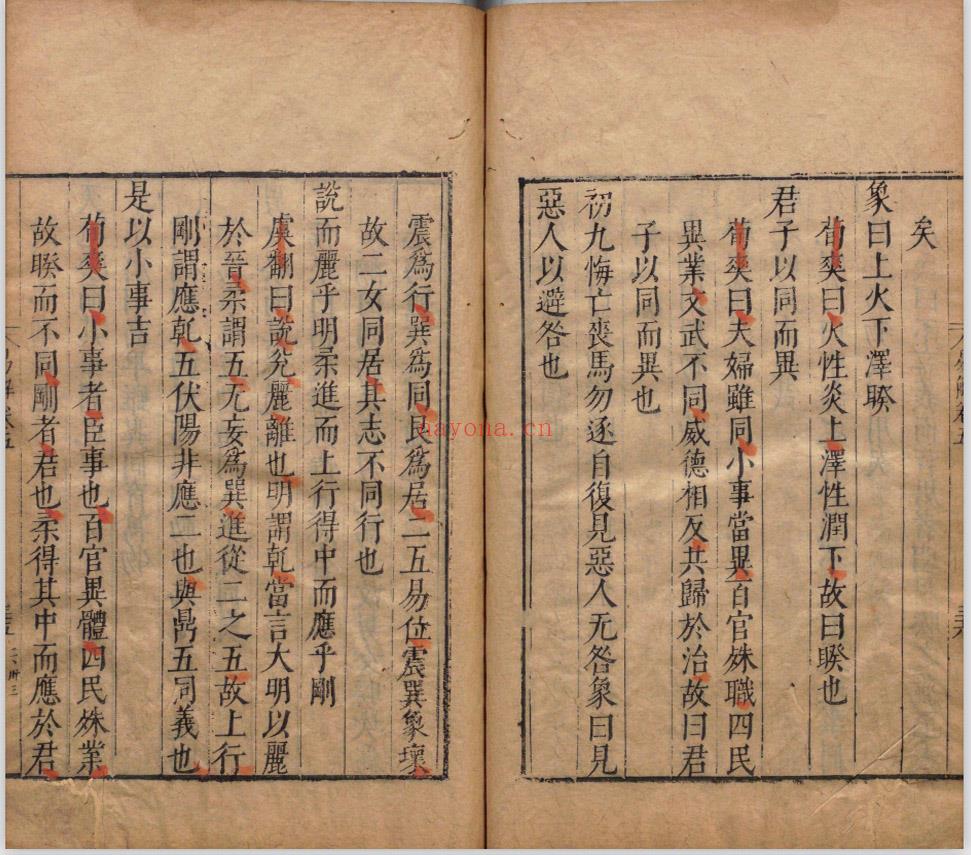 矣
象曰上火下澤睽
荀爽曰火性炎上澤性潤下故曰睽也
君子以同而異
荀爽曰夫婦雖同小事當異百官殊職四民
異業文武不同威德相反共歸於治故曰君
子以同而異也
初九悔亡喪馬勿逐自復見惡人无咎象曰見
惡人以避咎也
震爲行巽爲同艮爲居二五易位震巽象壞
故二女同居其志不同行也
說而麗乎明柔進而上行得中而應乎剛
虞翻曰說兊麗離也明謂乾當言大明以麗
於晉柔謂五无妄爲巽進從二之五故上行
剛謂應乾五伏陽非應二也與鼎五同義也
是以小事吉
荀爽曰小事者臣事也百官異體四民殊業
故睽而不同剛者君也柔得其中而應於君
nayona.cn